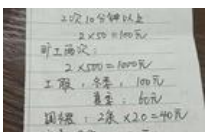 2次10分钟以上
2×50=100元
旷工两次:
2×500=1000元
工服:冬季:100元
夏季:60元
调休:2张×20=40元